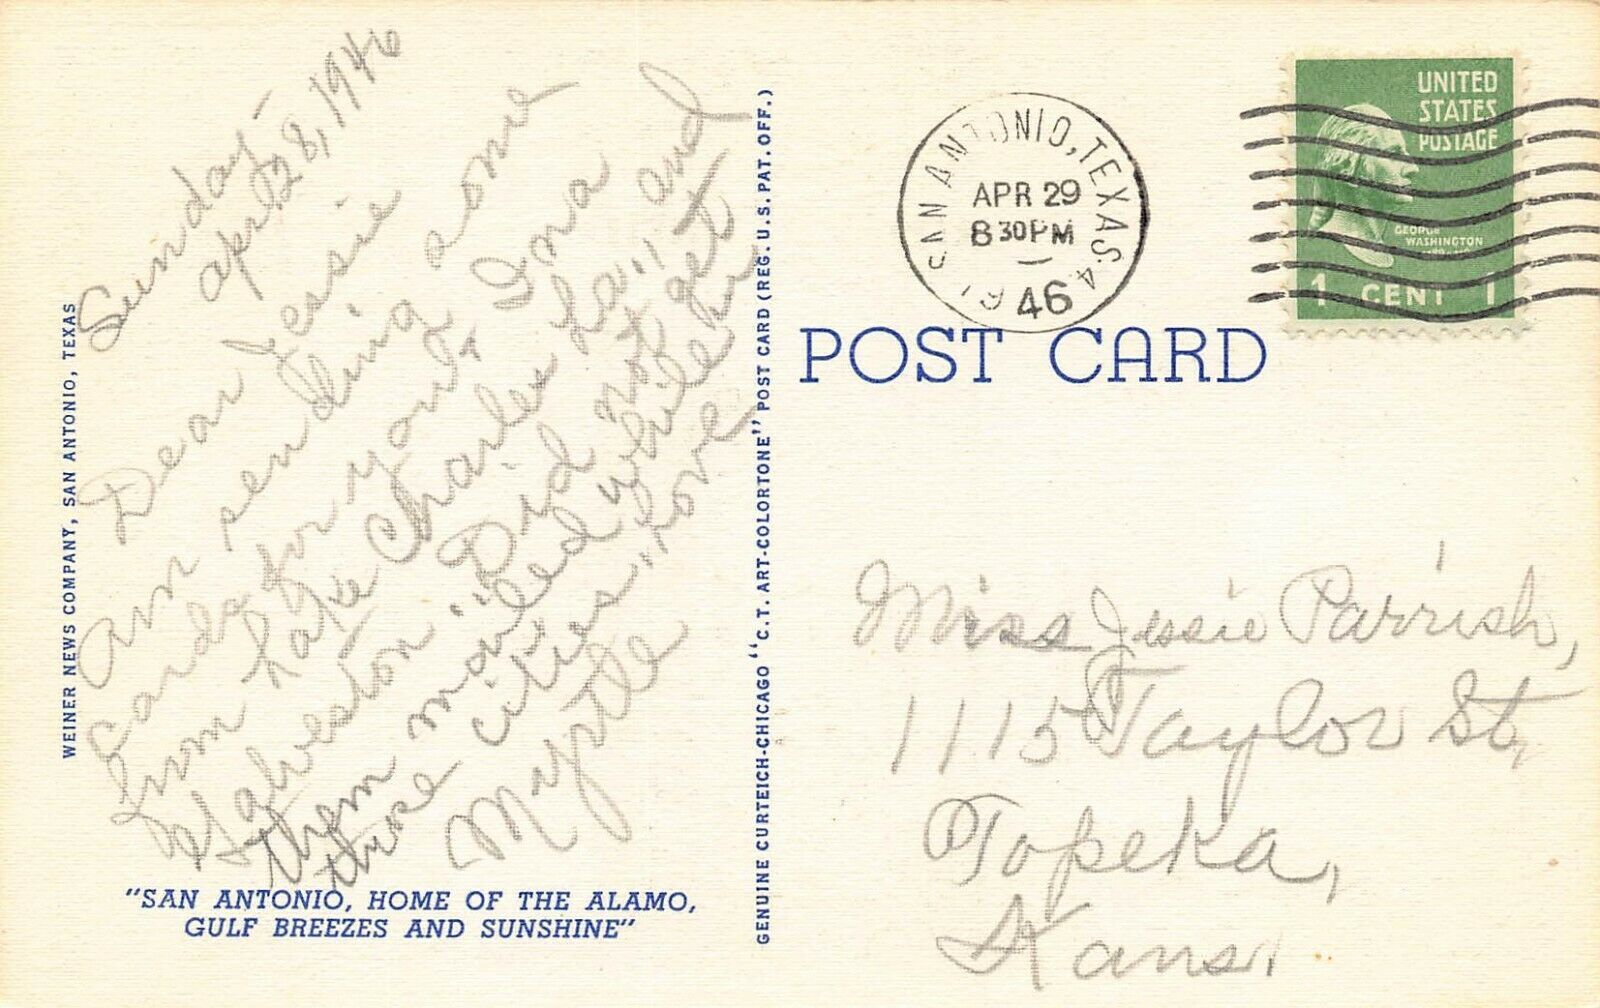 Sunday-
April 28, 1946
Dear Jessie
Am sending some
cards for you, Iona
from Lake Charles La., and
Galveston. Did not get
them mailed while in
those cities. Love
Myrtle
"SAN ANTONIO, HOME OF THE ALAMO,
GULF BREEZES AND SUNSHINE"
WEINER NEWS COMPANY, SAN ANTONIO, TEXAS
GENUINE CURTEICH-CHICAGO "C.T. ART-COLORTONE" POST CARD (REG. U.S. PAT. OFF.)
SAN ANTONIO, TEXAS 4
APR 29
8 30 PM
46
UNITED
STATES
POSTAGE
GEORGE
WASHINGTON
1 CENT 1
POST CARD
Miss Jessie Parrish,
1115 Taylor St,
Topeka,
Kans.